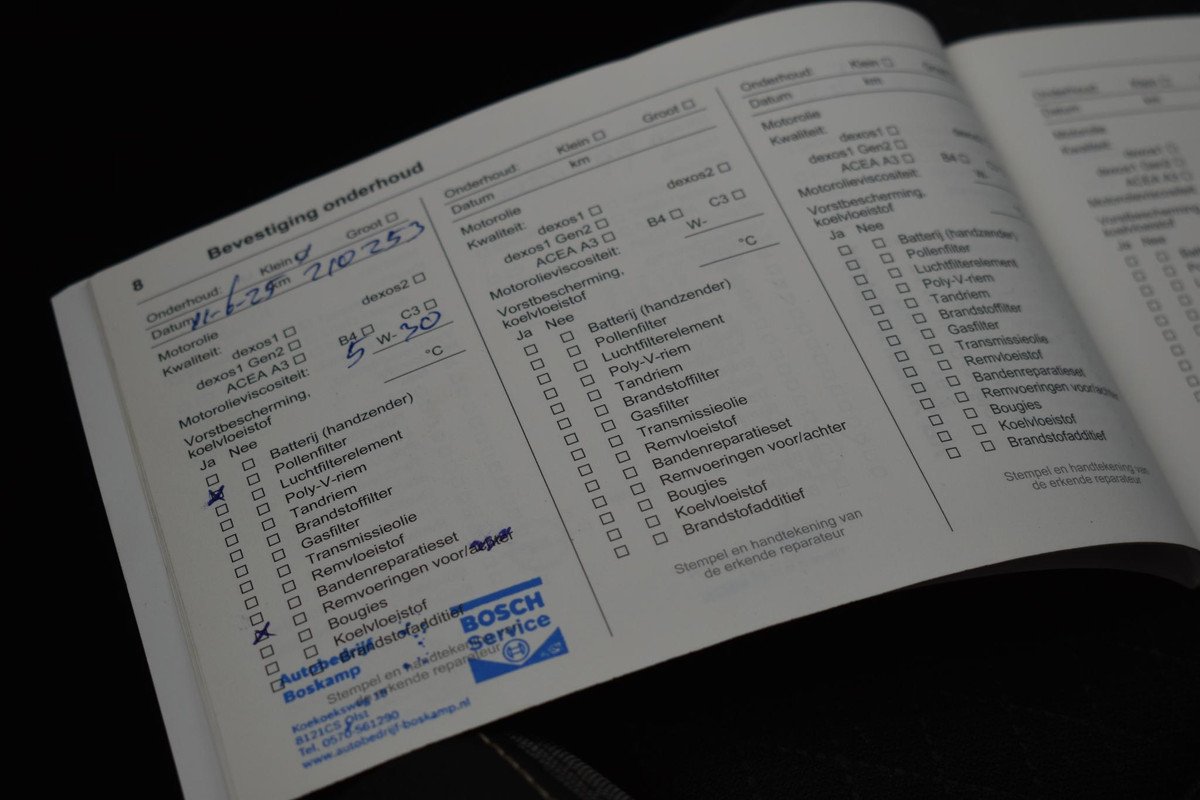 8
Bevestiging onderhoud
Onderhoud: Klein Groot
Datum 11-6-25 km 210 253
Motorolie
Kwaliteit: dexos1 dexos2
dexos1 Gen2
ACEA A3 B4 C3
Motorolieviscositeit: 5 W- 30
Vorstbescherming,
koelvloeistof °C
Ja Nee
Batterij (handzender)
Pollenfilter
Luchtfilterelement
Poly-V-riem
Tandriem
Brandstoffilter
Gasfilter
Transmissieolie
Remvloeistof
Bandenreparatieset
Remvoeringen voor/achter
Bougies
Koelvloeistof
Brandstofadditief
Stempel en handtekening van
de erkende reparateur
Autobedrijf
Boskamp
Koekoeksweg 18
8121CS Olst
Tel. 0570-561290
www.autobedrijf-boskamp.nl
BOSCH
Service
Onderhoud: Klein Groot
Datum km
Motorolie
Kwaliteit: dexos1 dexos2
dexos1 Gen2
ACEA A3 B4 C3
Motorolieviscositeit: W-
Vorstbescherming,
koelvloeistof °C
Ja Nee
Batterij (handzender)
Pollenfilter
Luchtfilterelement
Poly-V-riem
Tandriem
Brandstoffilter
Gasfilter
Transmissieolie
Remvloeistof
Bandenreparatieset
Remvoeringen voor/achter
Bougies
Koelvloeistof
Brandstofadditief
Stempel en handtekening van
de erkende reparateur
Onderhoud: Klein
Datum km
Motorolie
Kwaliteit: dexos1
dexos1 Gen2
ACEA A3 B4
Motorolieviscositeit: W-
Vorstbescherming,
koelvloeistof
Ja Nee
Batterij (handzender)
Pollenfilter
Luchtfilterelement
Poly-V-riem
Tandriem
Brandstoffilter
Gasfilter
Transmissieolie
Remvloeistof
Bandenreparatieset
Remvoeringen voor/achter
Bougies
Koelvloeistof
Brandstofadditief
Stempel en handtekening van
de erkende reparateur
Onderhoud: Klein
Datum km
Motorolie
Kwaliteit: dexos1
dexos1 Gen2
ACEA A3
Ja Nee